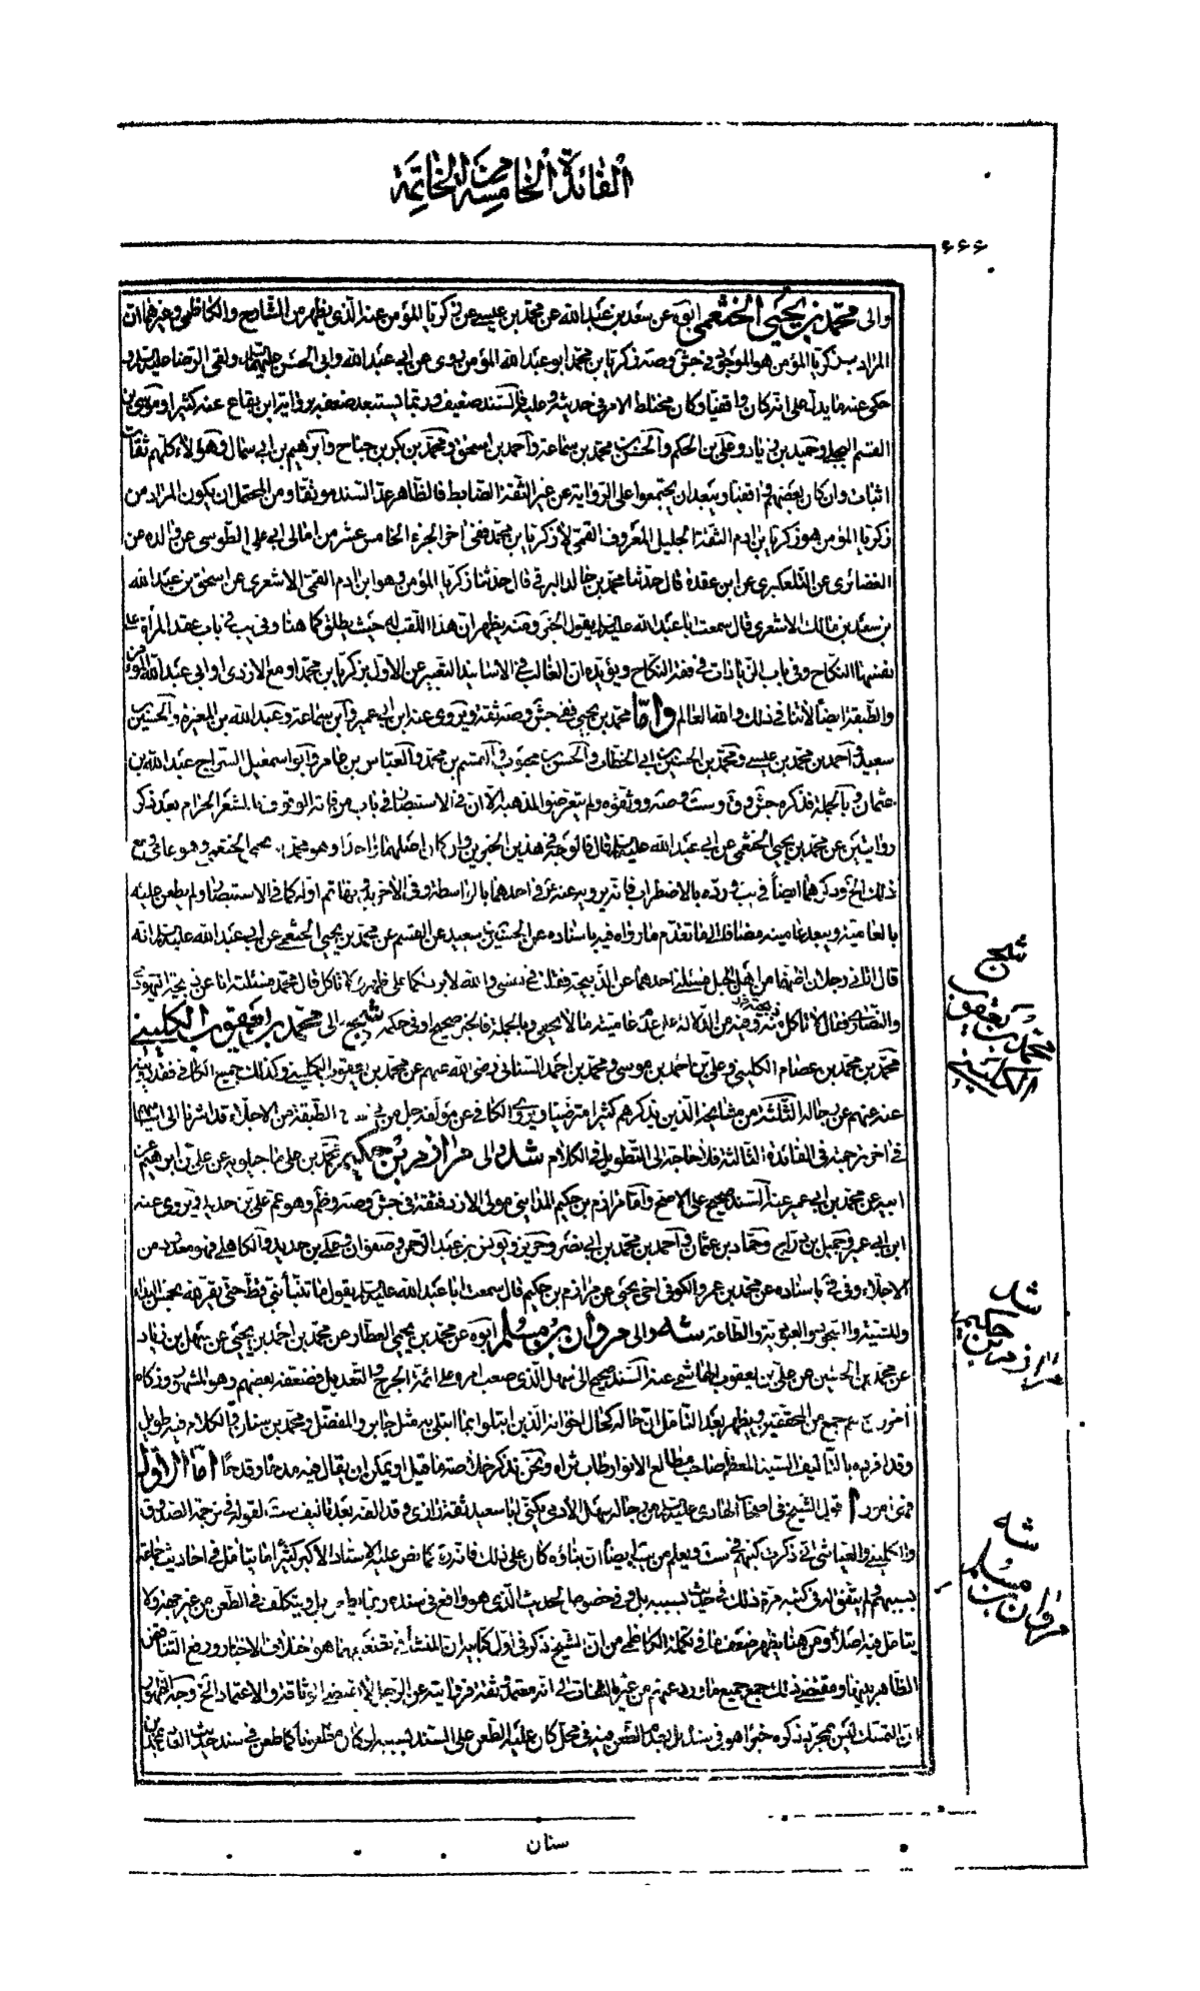 الفائدة الخامسة من الخاتمة
۶۶۶
والى محمد بن يحيى الخثعمي ابوه عن سعد بن عبد الله عن محمد بن عيسى عن زكريا المؤمن عنه الذي يظهر من الشارح والكاظمي وغيرهما ان
المراد من زكريا المؤمن هو الموجود في جش وصه زكريا بن محمد ابو عبد الله المؤمن روى عن ابي عبد الله وابي الحسن عليهما ولقى الرضا عليه
حكى عنه ما يدل على انه كان واقفيا وكان مختلط الامر في حديثه وعليه فالسند ضعيف وربما يستبعد ضعفه برواية ابن بقاح عنه كثيرا وموسى بن
القسم البجلي وحميد بن زياد وعلي بن الحكم والحسن بن محمد بن سماعة واحمد بن اسحق ومحمد بن بكر بن جناح وابرهيم بن ابي سمال وهؤلاء كلهم ثقات
اثبات وان كان بعضهم واقفيا ويبعد ان يجتمعوا على الرواية عن غير الثقة الضابط فالظاهر عد السند موثقا ومن المحتمل ان يكون المراد من
زكريا المؤمن هو زكريا بن ادم الثقة الجليل المعروف القمي لا زكريا بن محمد ففي اخر الجزء الخامس عشر من امالي ابي علي الطوسي عن والده عن
الغضائري عن التلعكبري عن ابن عقدة قال حدثنا محمد بن خالد البرقي قال حدثنا زكريا المؤمن وهو ابن ادم القمي الاشعري عن اسحق بن عبد الله
بن سعد بن مالك الاشعري قال سمعت ابا عبد الله عليه يقول الخبر ومنه يظهر ان هذا اللقب له حيث يطلق كما هنا وفي يب في باب عقد المراة على
نفسها النكاح وفي باب الزيادات في فقه النكاح ويؤيده ان الغالب في الاسانيد التعبير عن الاول بزكريا بن محمد او مع الازدي او ابي عبد الله المؤمن
والطبقة ايضا لا تنافي ذلك والله العالم واما محمد بن يحيى ففي جش وصه ثقة ويروي عنه ابن ابي عمير وابن سماعة وعبد الله بن المغيرة والحسين بن
سعيد واحمد بن محمد بن عيسى ومحمد بن الحسين بن ابي الخطاب والحسن بن محبوب والقسم بن محمد والعباس بن عامر وابو اسمعيل السراج عبد الله بن
عثمان وبالجملة فذكره جش وق وست وصه ووثقوه ولم يتعرضوا لمذهبه الا ان في الاستبصار في باب من فاته الوقوف بالمشعر الحرام بعد ذكر
روايتين عن محمد بن يحيى الخثعمي عن ابي عبد الله عليه قال فالوجه في هذين الخبرين وان كان اصلهما واحدا وهو محمد بن يحيى الخثعمي وهو عامي ومع
ذلك الخ وذكرهما ايضا في يب ورده بالاضطراب فانه يرويه عنه في احدهما بالواسطة وفي الاخر
بالعامية ويبعد عاميته مضافا الى ما تقدم ما رواه فيه باسناده عن الحسين بن سعيد عن القسم عن محمد بن يحيى الخثعمي عن ابي عبد الله عليه انه
قال اتاني رجلان اظنهما من اهل الجبل فسئلني احدهما عن الذبيحة
والنصارى فقال لا تاكل منه وفيه من الدلالة على عدم عاميته ما لا يخفى وبالجملة فالخبر صحيح او في حكمه شيح والى محمد بن يعقوب الكليني
محمد بن محمد بن عصام الكليني وعلي بن احمد بن موسى ومحمد بن احمد السناني رضي الله عنهم عن محمد بن يعقوب الكليني وكذلك جميع الكافي فقد رويته
عنه عنهم عن رجاله الثلثة من مشايخه الذين يذكرهم كثيرا مترضيا ويروي الكافي عن مؤلفه جل من في الطبقة من الاجلاء قد اشرنا الى
في اخر ترجمته في الفائدة الثالثة فلا حاجة الى التطويل في الكلام شد والى مرازم بن حكيم محمد بن علي ماجيلويه عن علي بن ابرهيم عن
ابيه عن محمد بن ابي عمير عنه السند صحيح على الاصح واما مرازم بن حكيم المدايني مولى الازد فثقة في جش وصه وظم وهو عم علي بن حديد ويروي عنه
ابن ابي عمير وجميل بن دراج وحماد بن عثمان واحمد بن محمد بن ابي نصر وحريز ويونس بن عبد الرحمن وصفوان وعلي بن حديد والكاهلي فهو معدود من
الاجلاء وفي في باسناده عن محمد بن عمرو الكوفي اخي يحيى عن مرازم بن حكيم قال سمعت ابا عبد الله عليه يقول ما تنبأ نبي قط حتى يقر لله بخمس بالبداء
والمشية والسجود والعبودية والطاعة شه والى مروان بن مسلم ابوه عن محمد بن يحيى العطار عن محمد بن احمد بن يحيى عن سهل بن زياد
عن محمد بن الحسين عن علي بن يعقوب الهاشمي عنه السند صحيح الى سهل الذي صعب امره على ائمة الجرح والتعديل فضعفه بعضهم وهو المشهور وزكاه
اخرون جمع من المحققين ويظهر بعد التامل ان حاله كحال اخوانه الذين ابتلوا بما ابتلي به مثل جابر والمفضل ومحمد بن سنان والكلام فيه طويل
وقد افرده بالتاليف السيد المعظم صاحب مطالع الانوار طاب ثراه ونحن نذكر خلاصة ما قيل او يمكن ان يقال فيه مدحا وقدحا اما الاول
فمن امور ا قول الشيخ في اصحاب الهادي عليه من رجاله سهل الادمي يكنى ابا سعيد ثقة رازي وقد الفه بعد تاليف ست لقوله في ترجمة الصدوق
والكليني والعياشي ذكرت كتبهم في ست ويعلم من يب ايضا ان بناؤه كان على ذلك فانه كما نص عليه الاستاد الاكبر كثيرا ما يتامل في احاديث جماعة
بسببهم ولم يتفق له في كتبه مرة ذلك في حديث بسببه بل وفي خصوص الحديث الذي هو واقع في سنده وربما يطعن بل ويتكلف في الطعن من غير جهته ولا
يتامل فيه اصلا ومن هنا يظهر ضعف ما في تكملة الكاظمي من ان الشيخ ذكر في اول كتابيه ان المنشأ في تصنيفهما هو اختلاف الاخبار ورفع التناقض
الظاهر بينها ومقتضى ذلك جمع جميع ما ورد عنهم من غير التفات الى انه معتمد وثقة فروايته عن الرجل لا تقتضي الوثاقة والاعتماد الخ وجه الظهور
ان التمسك ليس بمجرد ذكره خبرا هو في سنده بل بعدم الطعن منه في محل كان عليه الطعن على السند بسببه لو كان مطعونا كما طعن في سند حديث فيه محمد بن
سنان
شيح محمد بن يعقوب الكليني
شد مرازم بن حكيم
شه مروان بن مسلم